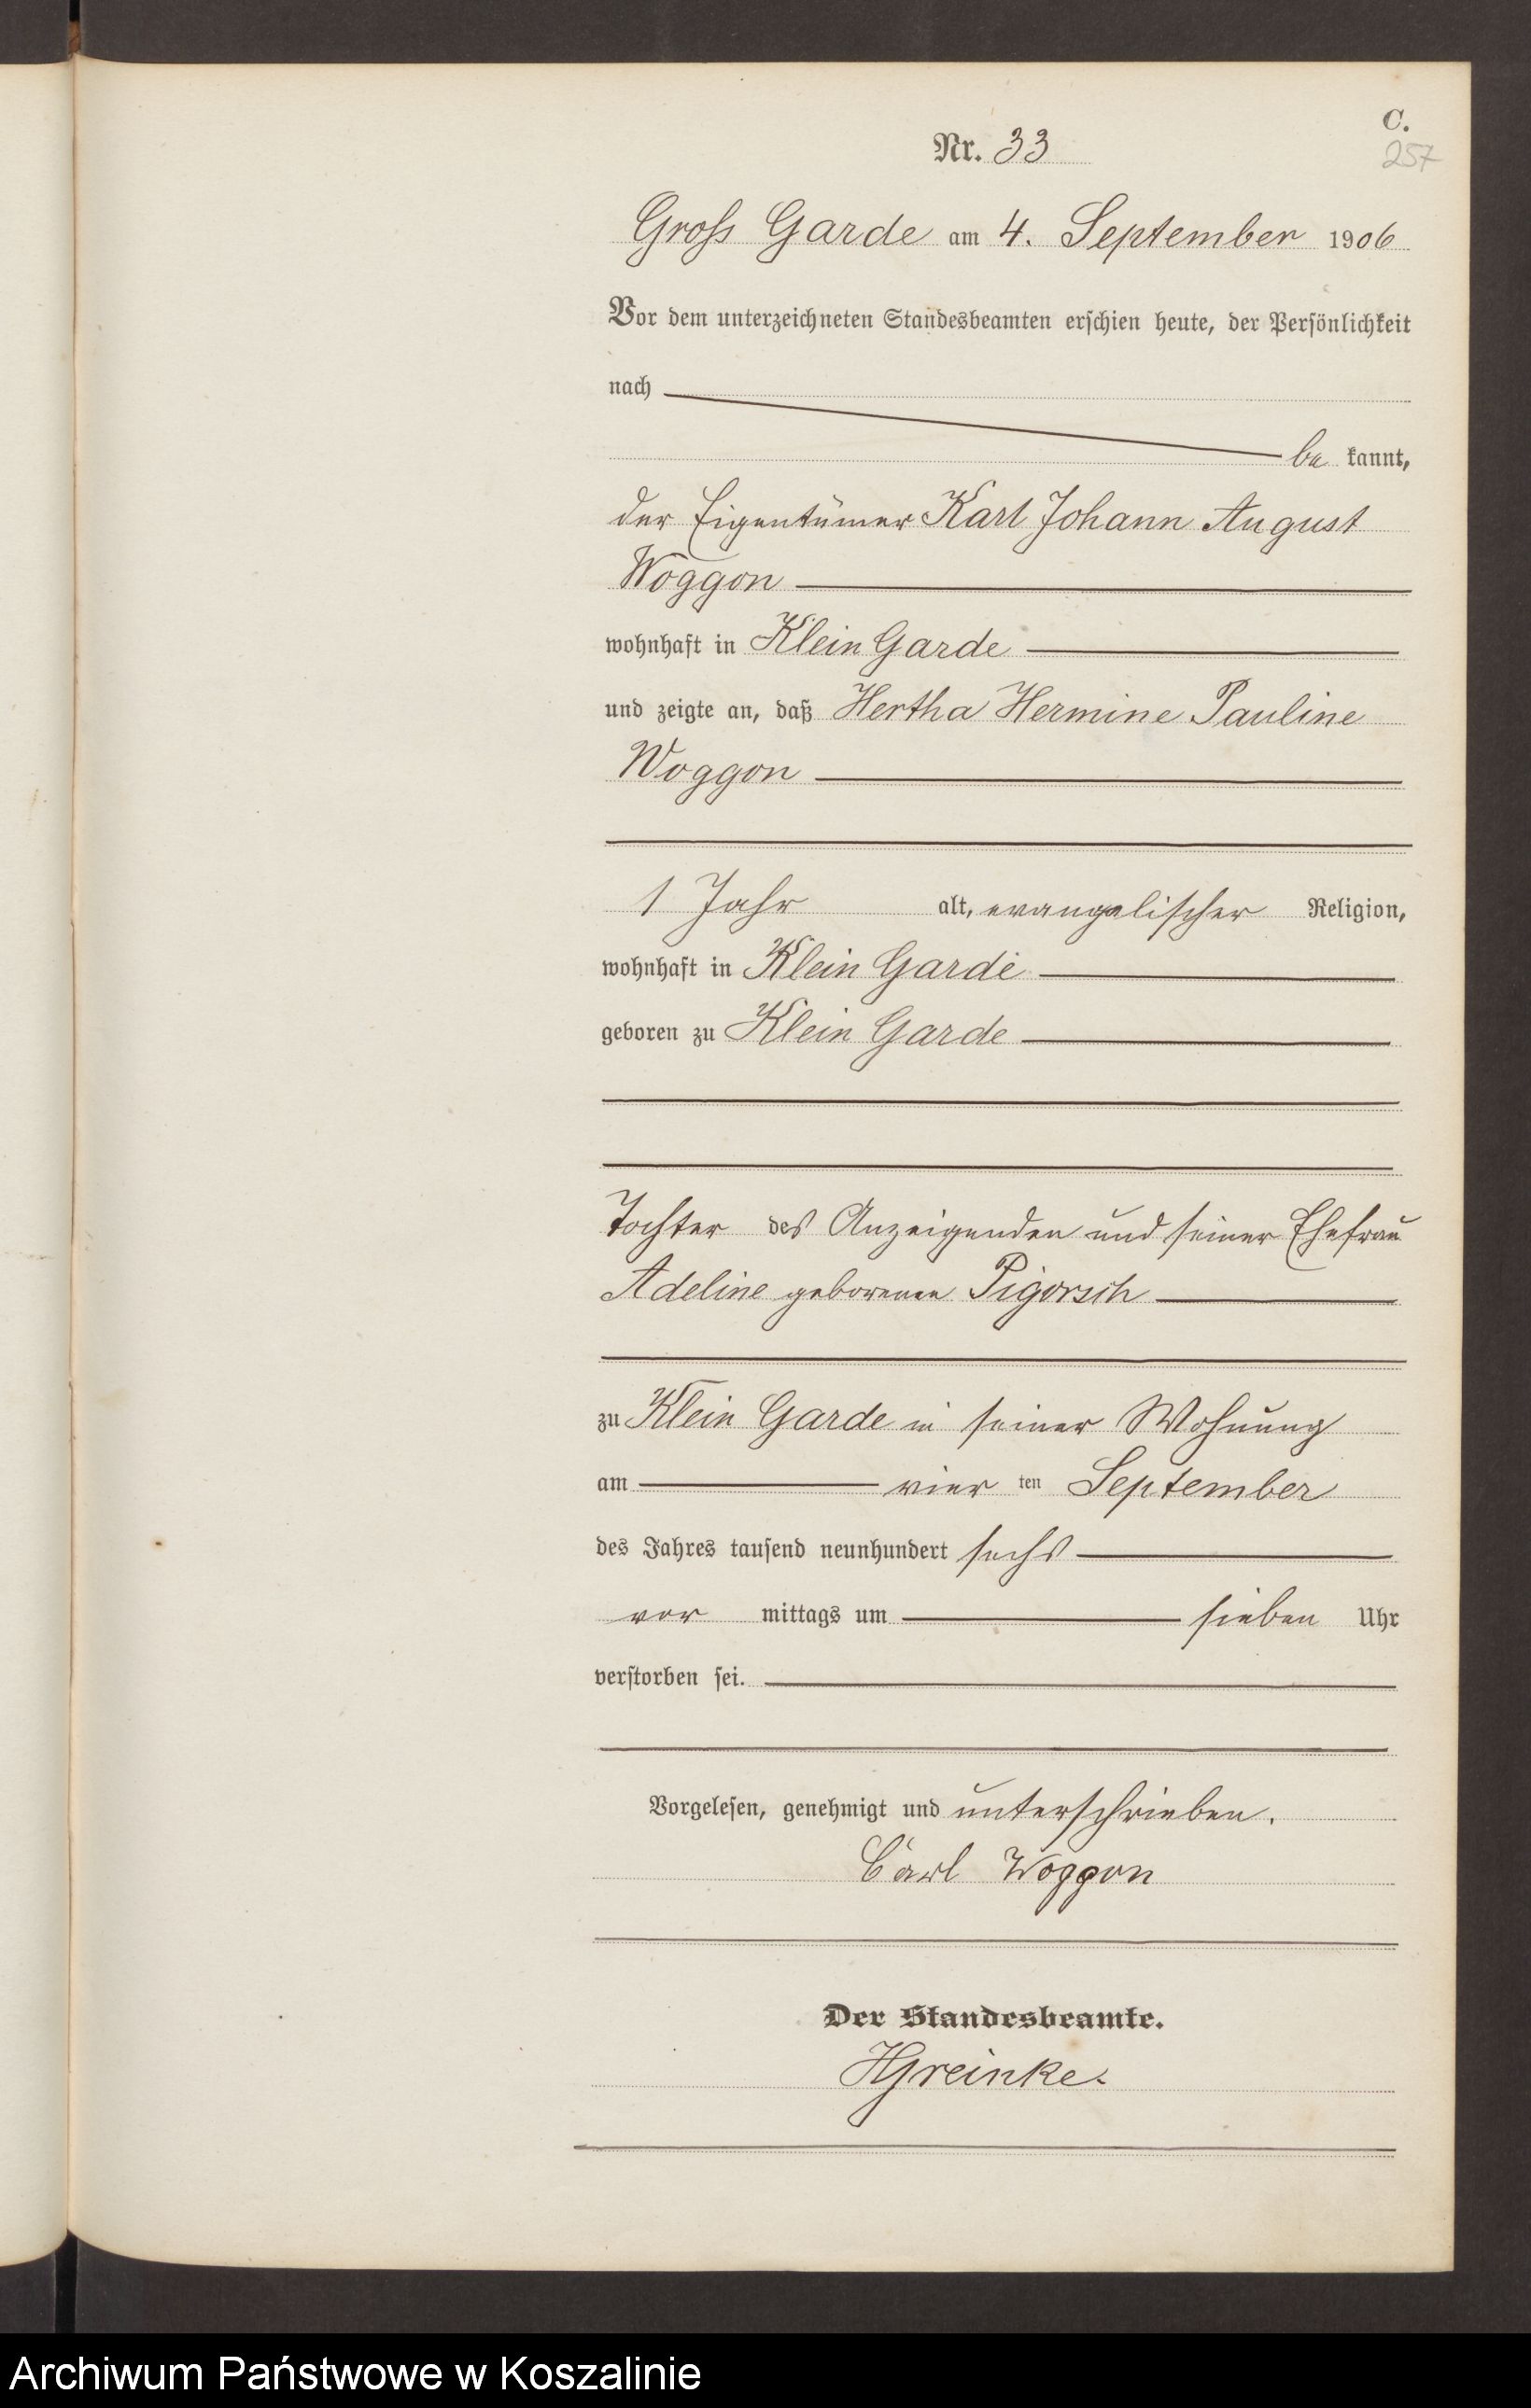 C.
Nr. 33
257
Gross Garde am 4. September 1906
Vor dem unterzeichneten Standesbeamten erschien heute, der Persönlichkeit
nach
be kannt,
der Eigentümer Karl Johann August
Woggon
wohnhaft in Klein Garde
und zeigte an, daß Hertha Hermine Pauline
Woggon
1 Jahr alt, evangelischer Religion,
wohnhaft in Klein Garde
geboren zu Klein Garde
Tochter des Anzeigenden und seiner Ehefrau
Adeline geborenen Pigorsch
zu Klein Garde in seiner Wohnung
am vier ten September
des Jahres tausend neunhundert sechs
vor mittags um sieben Uhr
verstorben sei.
Vorgelesen, genehmigt und unterschrieben.
Carl Woggon
Der Standesbeamte.
HGreinke.
Archiwum Państwowe w Koszalinie